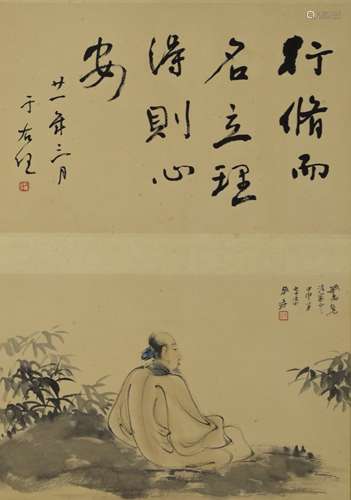 行脩而
名立理
得則心
安
廿一年三月
于右任